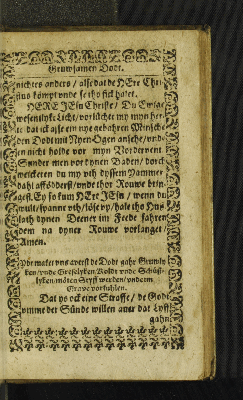 Gruwsamen Dodt.
nichtes anders / alse dat de HEre Chri
stus kömpt vnde se tho sick halet.
HERE JEsu Christe / Du Ewige
wesentlyke Licht / vorlüchte my myn her=
te dat ick alse ein nye gebahren Minsche
den Dodt mit Nyen Ogen ansehe / vnde
en nicht holde vor myn Vordervent
Sunder men vor dynen Baden / dorch
welckeren du my vth dyssem Jammer
dahl afföderst / vnde thor Rouwe brin=
gest. Ey so kum HErr JEsu / wenn du
wult / spanne vth / löse vp / hale tho Hus
lath dynen Deener im Frede fahren
dem na dyner Rouwe vorlanget /
Amen.
Wor maket vns averst de Dodt gahr Gruwly
ken / vnde
möten Styff werden / vnde im
Grave vorfulen.
Dat ys ock eine Straffe / de Godt
vmme der Sünde willen aver dat Lyff
gahn